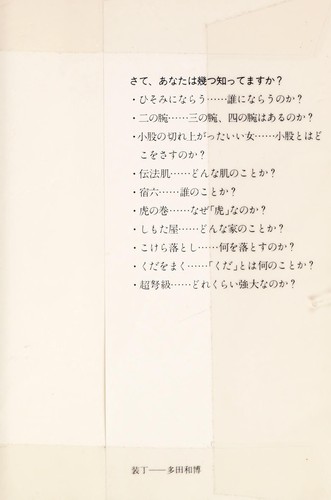 さて、あなたは幾つ知ってますか？
・ひそみにならう……誰にならうのか？
・二の腕……三の腕、四の腕はあるのか？
・小股の切れ上がったいい女……小股とはど
こをさすのか？
・伝法肌……どんな肌のことか？
・宿六……誰のことか？
・虎の巻……なぜ「虎」なのか？
・しもた屋……どんな家のことか？
・こけら落とし……何を落とすのか？
・くだをまく……「くだ」とは何のことか？
・超弩級……どれくらい強大なのか？
装丁──多田和博